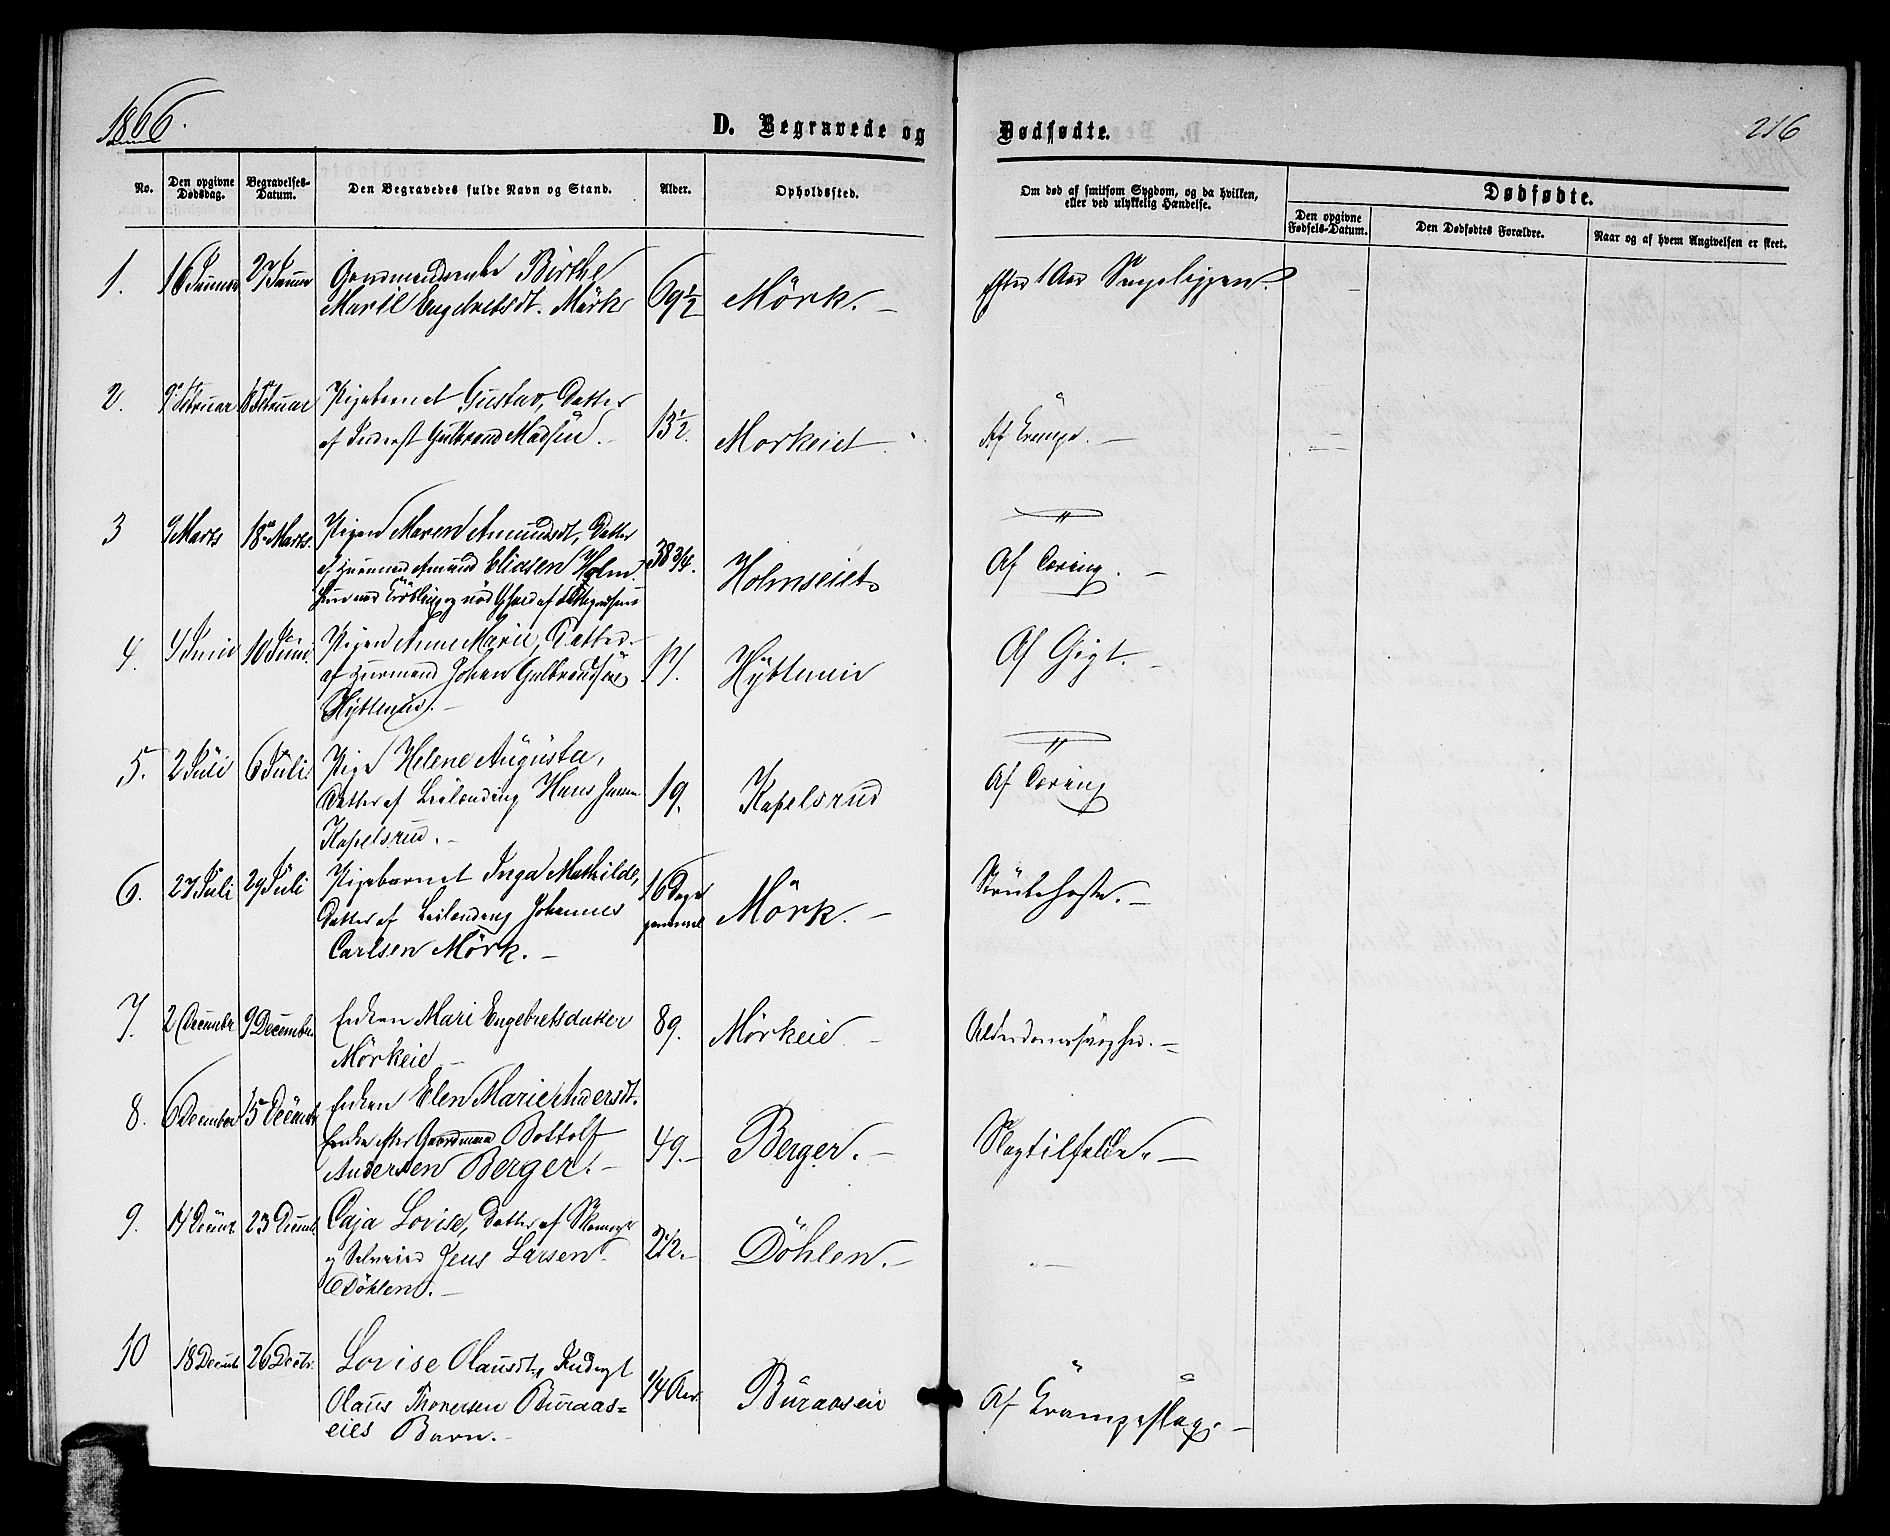 1866.
D. Begravede og
Dødfødte.
216
No.
Den opgivne Dødsdag.
Begravelses-Datum.
Den Begravedes fulde Navn og Stand.
Alder.
Opholdssted.
Om død af smitsom Sygdom, og da hvilken, eller ved ulykkelig Hændelse.
Dødfødte.
Den opgivne Fødsels-Datum.
Den Dødfødtes Forældre.
Naar og af hvem Angivelsen er skeet.
1. 16 Januar 27 Januar Birthe 69½ Mörk. Efter 1 Aar Sengeliggen.
Marie Engebretsdt. Mörk
2. 9 Februar 18 Februar Pigebarnet Gustav, Datter 13½. Morkeiet. Af Krampe.
af Inderst Gulbrand Madsen.
3 9 Marts 18 Marts. Pigen Maren Amundsdt, Datter 38 3/4. Holmseiet Af Tæring.
af Huusmand Amund Eliasen Holm.
4. 4 Juni 10 Juni. Pigen Anne Marie, Datter 17. Hytteneie Af Gigt.
af Huusmand Johan Gulbrandsen
5. 2 Juli 6 Juli. Pige Helene Augusta, 19. Kapelsrud Af Tæring
Datter af Leilænding Hans Jensen
Kapelsrud.
6. 27 Juli 29 Juli Pigebarnet Inga Mathilde, 16 Dage gammel Mörk. Strubehoste.
Datter af Leilænding Johannes
Carlsen Mørk.
7. 2 December 9 December. Enken Mari Engebretsdatter 89. Mörkeie. Alderdomssvaghed.
Mörkeie
8. 6 December 15 December Enken Elen Marie Andersdt. 49. Berger. Slagtilfælde.
Enke efter Gaardmand Bottolf
Andersen Berger.
9. 14 Decembr 23 Decembr. Caja Lovise, Datter af 2½. Döhlen.
og Selveier Jens Larsen
Döhlen.
10 18 Decembr 26 Decbr. Lovise Olausdt, Inderst 1/4 Aar. Büraaseie Af Krampeslag.
Olaus Thoversen Buraas=
eies Barn.